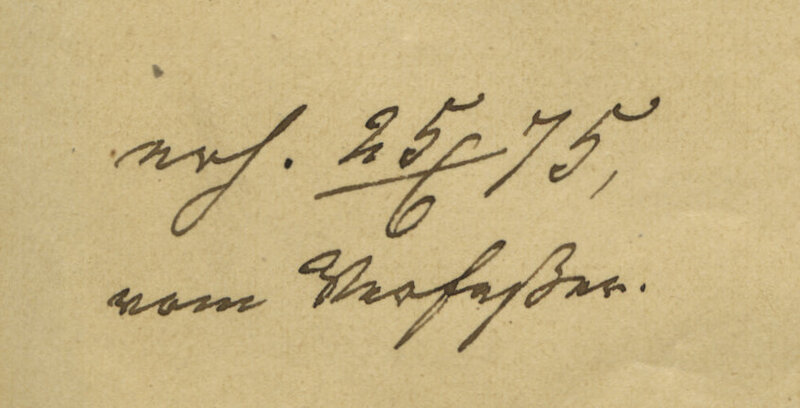 erh. 25/6 75,
vom Verfaßer.